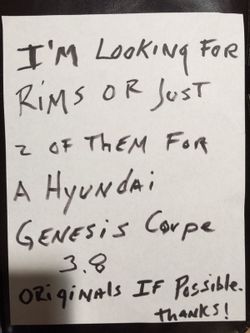 I'M LOOKING FOR
RIMS OR JUST
2 OF THEM FOR
A HYUNDAI
GENESIS COUPE
3.8
ORIGINALS IF POSSIBLE.
THANKS!